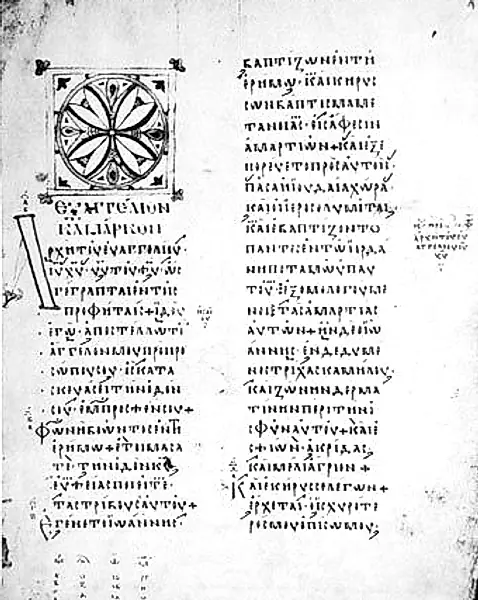 ΕΥΑΓΓΕΛΙΟΝ
ΚΑΤΑ ΜΑΡΚΟΝ
ΑΡΧΗ ΤΟΥ ΕΥΑΓΓΕΛΙΟΥ·
ΙΥ ΧΥ· ΥΥ ΤΟΥ ΘΥ· ΩΣ
ΓΕΓΡΑΠΤΑΙ ΕΝ ΤΟΙΣ
ΠΡΟΦΗΤΑΙΣ + ΙΔΟΥ
ΕΓΩ ΑΠΟΣΤΕΛΛΩ ΤΟΝ
ΑΓΓΕΛΟΝ ΜΟΥ ΠΡΟ ΠΡΟ
ΣΩΠΟΥ ΣΟΥ· ΟΣ ΚΑΤΑ
ΣΚΕΥΑΣΕΙ ΤΗΝ ΟΔΟΝ
ΣΟΥ· ΕΜΠΡΟΣΘΕΝ ΣΟΥ +
ΦΩΝΗ ΒΟΩΝΤΟΣ ΕΝ ΤΗ
ΕΡΗΜΩ + ΕΤΟΙΜΑΣΑ
ΤΕ ΤΗΝ ΟΔΟΝ ΚΥ
ΕΥΘΕΙΑΣ ΠΟΙΕΙΤΕ
ΤΑΣ ΤΡΙΒΟΥΣ ΑΥΤΟΥ +
ΕΓΕΝΕΤΟ ΙΩΑΝΝΗΣ
ΒΑΠΤΙΖΩΝ ΕΝ ΤΗ
ΕΡΗΜΩ· ΚΑΙ ΚΗΡΥΣ
ΣΩΝ ΒΑΠΤΙΣΜΑ ΜΕ
ΤΑΝΟΙΑΣ· ΕΙΣ ΑΦΕΣΙΝ
ΑΜΑΡΤΙΩΝ + ΚΑΙ ΕΞΕ
ΠΟΡΕΥΕΤΟ ΠΡΟΣ ΑΥΤΟΝ·
ΠΑΣΑ Η ΙΟΥΔΑΙΑ ΧΩΡΑ·
ΚΑΙ ΟΙ ΙΕΡΟΣΟΛΥΜΙΤΑΙ·
ΚΑΙ ΕΒΑΠΤΙΖΟΝΤΟ
ΠΑΝΤΕΣ ΕΝ ΤΩ ΙΟΡΔΑ
ΝΗ ΠΟΤΑΜΩ ΥΠ ΑΥ
ΤΟΥ· ΕΞΟΜΟΛΟΓΟΥΜΕ
ΝΟΙ ΤΑΣ ΑΜΑΡΤΙΑΣ
ΑΥΤΩΝ + ΗΝ ΔΕ Ο ΙΩ
ΑΝΝΗΣ· ΕΝΔΕΔΥΜΕ
ΝΟΣ ΤΡΙΧΑΣ ΚΑΜΗΛΟΥ·
ΚΑΙ ΖΩΝΗΝ ΔΕΡΜΑ
ΤΙΝΗΝ ΠΕΡΙ ΤΗΝ Ο
ΣΦΥΝ ΑΥΤΟΥ + ΚΑΙ Ε
ΣΘΙΩΝ· ΑΚΡΙΔΑΣ
ΚΑΙ ΜΕΛΙ ΑΓΡΙΟΝ +
ΚΑΙ ΕΚΗΡΥΣΣΕ ΛΕΓΩΝ +
ΕΡΧΕΤΑΙ· Ο ΙΣΧΥΡΟΤΕ
ΡΟΣ ΜΟΥ ΟΠΙΣΩ ΜΟΥ·